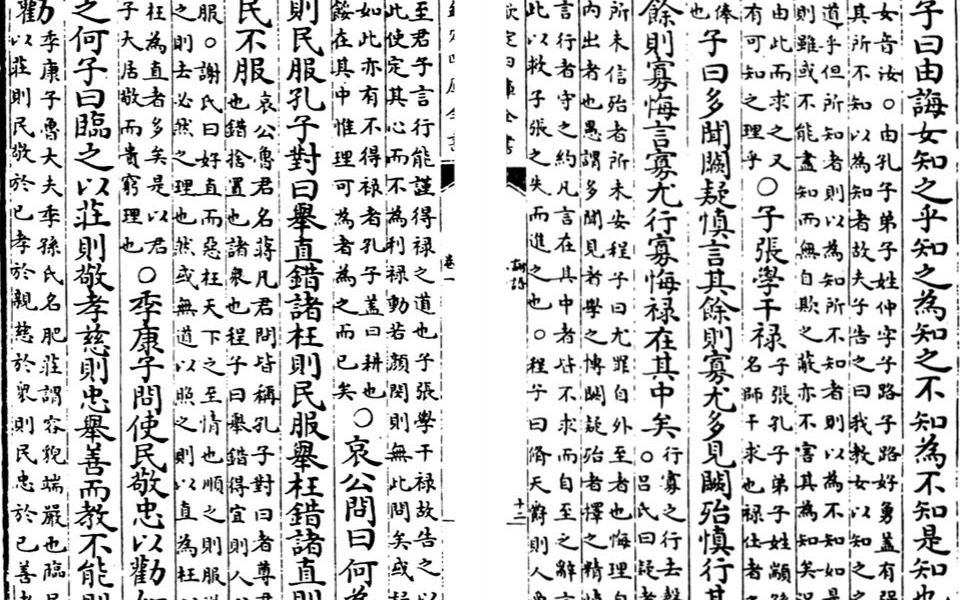 子曰由誨女知之乎知之為知之不知為不知是知也
女音汝○由孔子弟子姓仲字子路子路好勇蓋有强
其所不知以為知者故夫子告之曰我教女以知之
道乎但所知者則以為知所不知者則以為不知如是
則雖或不能盡知而無自欺之蔽亦不害其為知矣况
由此而求之又
有可知之理乎
○子張學干禄
子張孔子弟子姓顓
名師干求也禄仕者
俸
也
子曰多聞闕疑慎言其餘則寡尤多見闕殆慎行其
餘則寡悔言寡尤行寡悔禄在其中矣
行寡之行去聲
○吕氏曰疑者
所未信殆者所未安程子曰尤罪自外至者也悔理自
内出者也愚謂多聞見者學之博闕疑殆者擇之精慎
言行者守之約凡言在其中者皆不求而自至之辭言
此以救子張之失而進之也○程子曰脩天爵則人爵
欽定四庫全書
論語
十二
欽定四庫全書
卷一
至君子言行能謹得禄之道也子張學干禄故告之以
此使定其心而不為利禄動若顔閔則無此問矣或疑
如此亦有不得禄者孔子蓋曰耕也
餒在其中惟理可為者為之而已矣
○哀公問曰何為
則民服孔子對曰舉直錯諸枉則民服舉枉錯諸直則
民不服
哀公魯君名蔣凡君問皆稱孔子對曰者尊君
也錯捨置也諸衆也程子曰舉錯得宜則人心
服○謝氏曰好直而惡枉天下之至情也順之則服逆
之則去必然之理也然或無道以照之則以直為枉以
枉為直者多矣是以君
子大居敬而貴窮理也
○季康子問使民敬忠以勸如
之何子曰臨之以莊則敬孝慈則忠舉善而教不能則
勸
季康子魯大夫季孫氏名肥莊謂容貌端嚴也臨民
以莊則民敬於已孝於親慈於衆則民忠於已善者